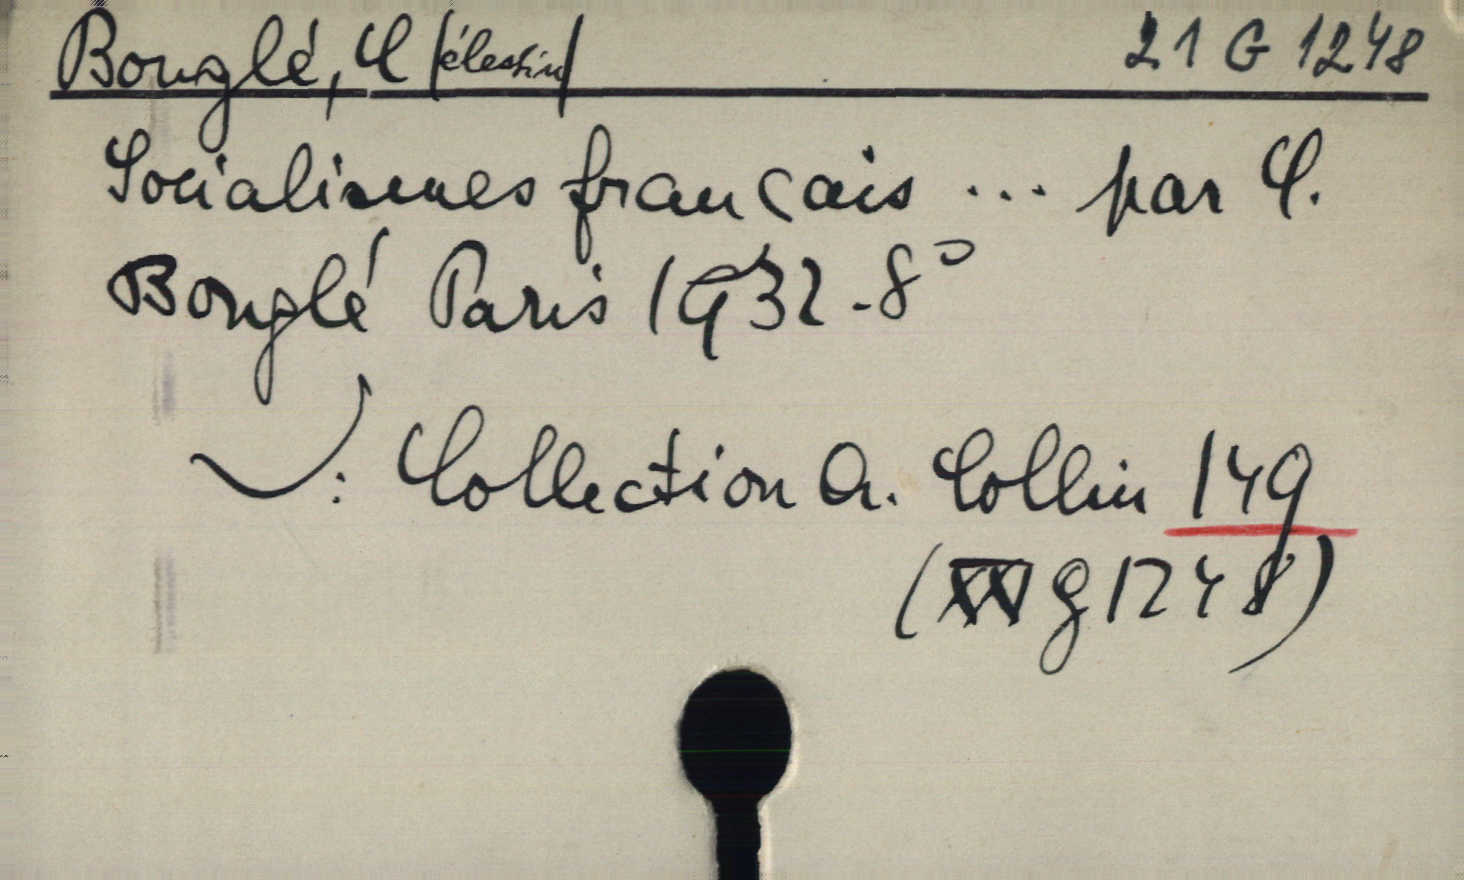 Bouglé, C (élestin) 21 G 1248
Socialismes français ... par C.
Bouglé Paris 1932 - 8°
: Collection A. Collin 149
(XXI g 1248)